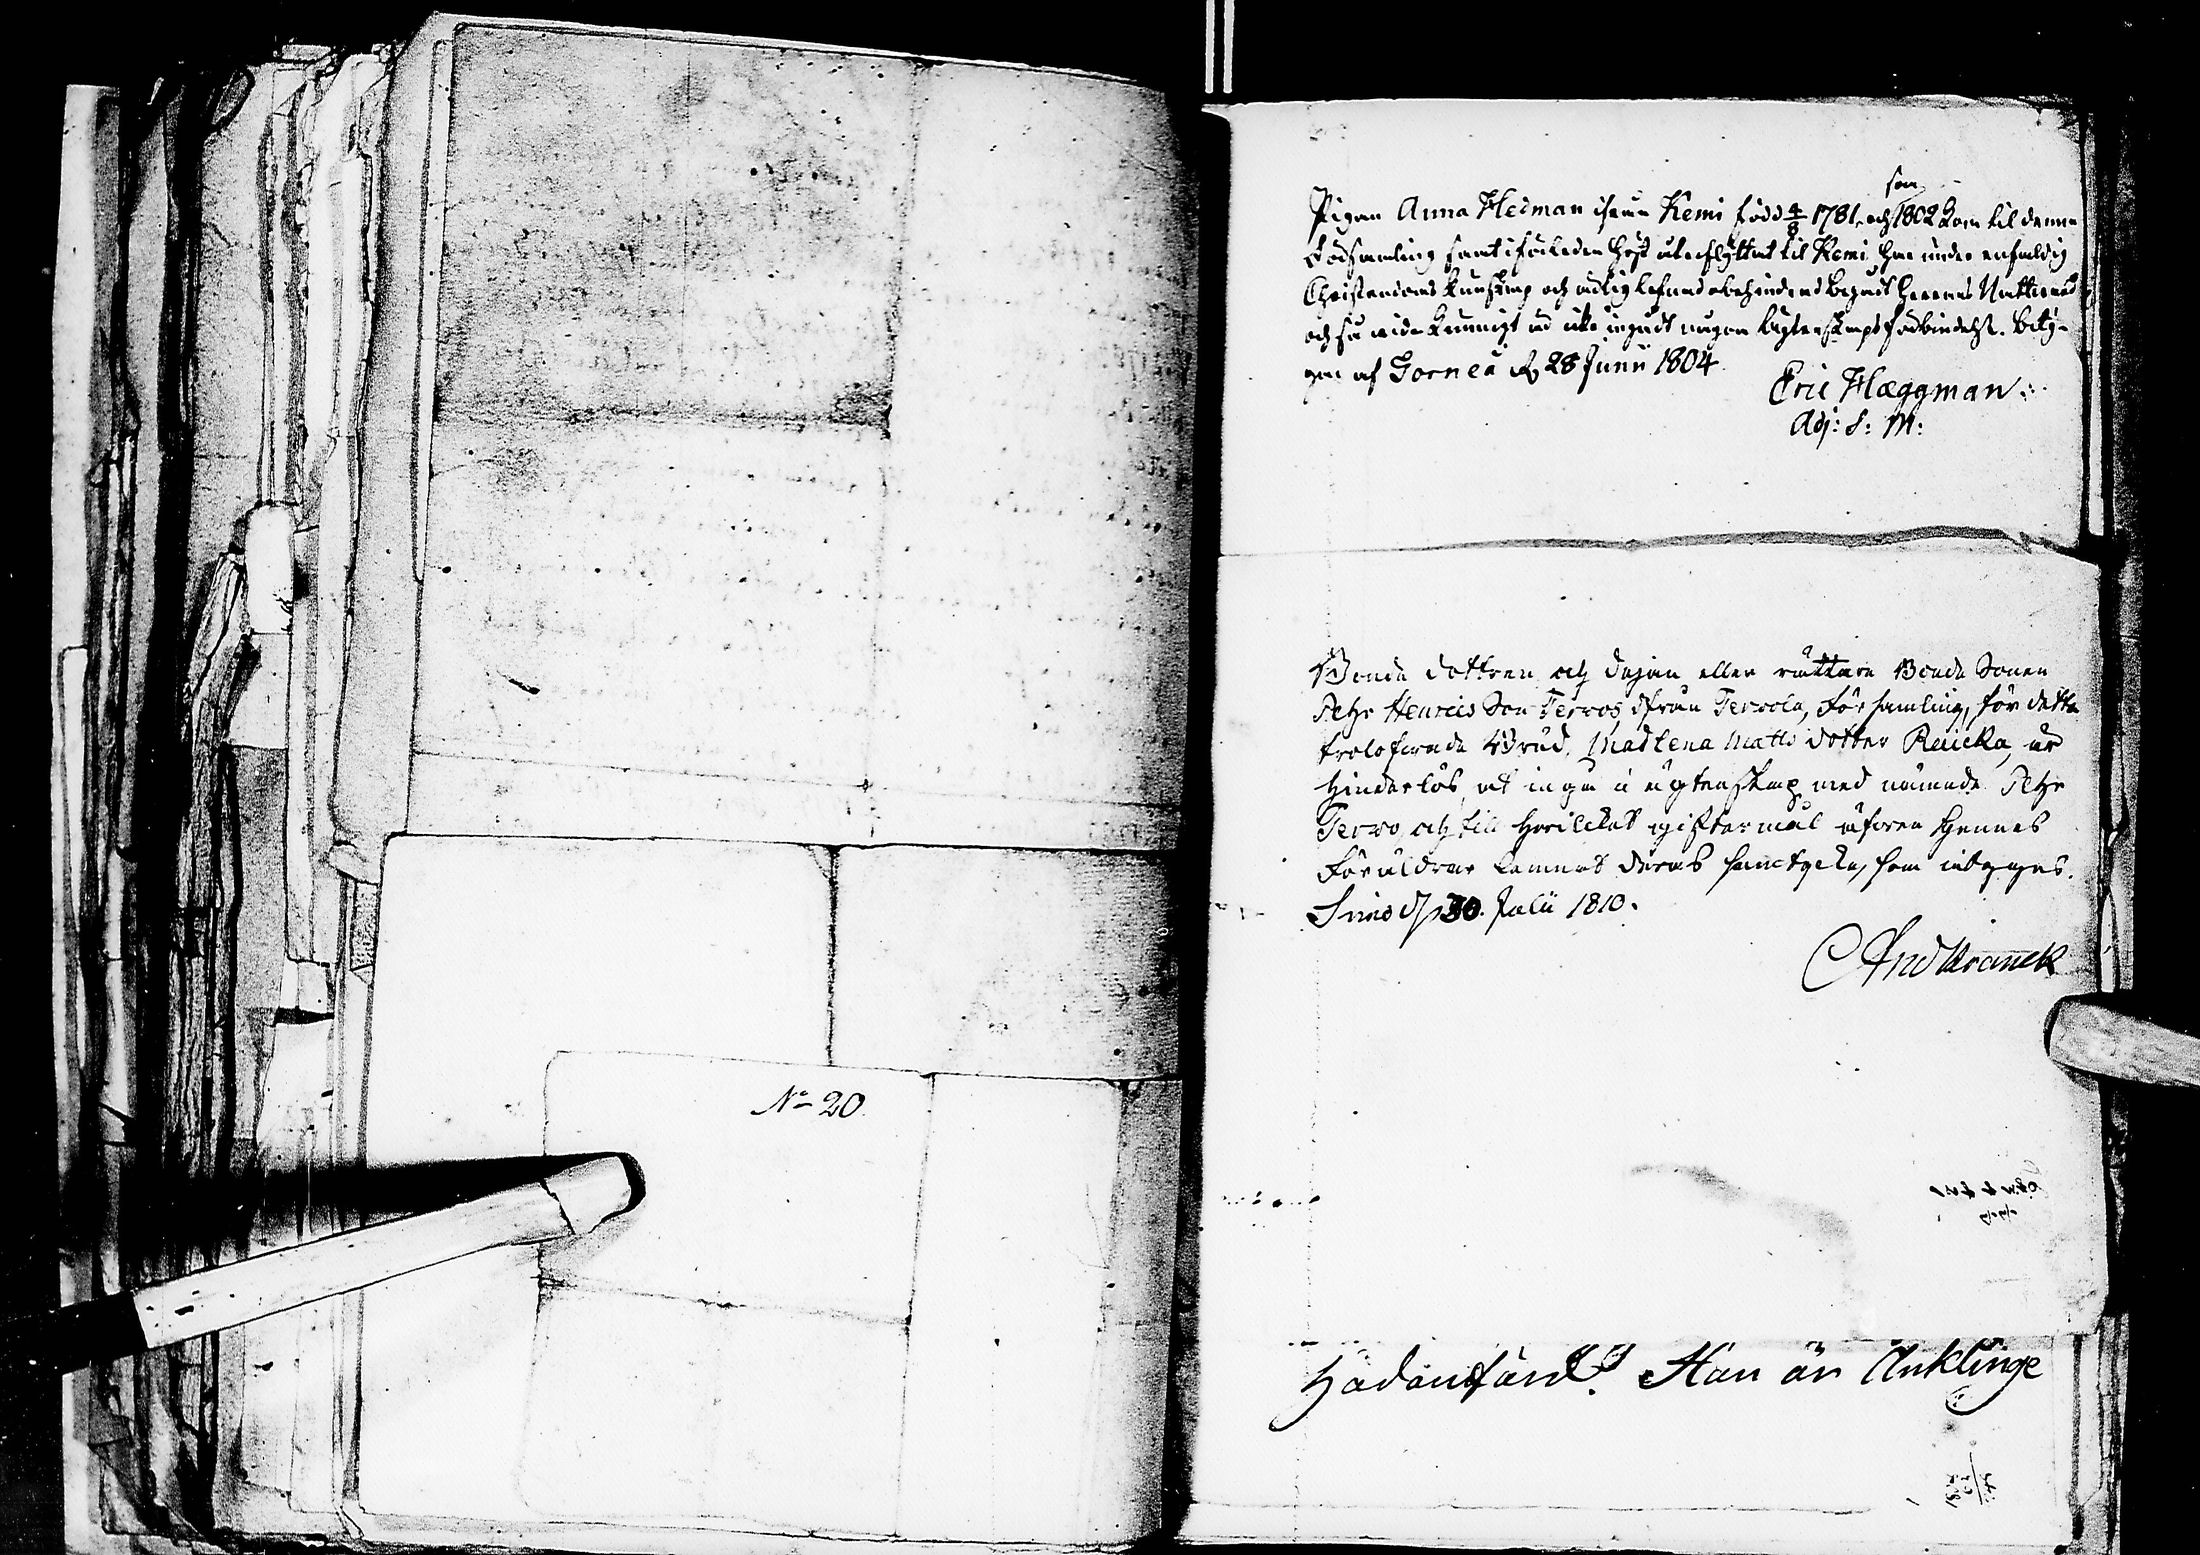 No 20
som
Pigan Anna Hedman ifrån Kemi född 4/8 1781, och 1802 kom til denna
Församling samt i förleden höst återflyttat til Kemi har under enfaldig
Christendoms kunskap och ärlig lefnad obehindrad begådt Herrens Nattvard
och så vida kunnigt är icke ingådt någon Ägtenskaps förbindelse. Bety-
gar af Torneå d 28 Junii 1804.
Eric Hæggman
Adj: S: M:
Bonde dottren och Dejan eller rättare Bonde Sonen
Petr Henrics Son Tervos, ifrån Tervola, församling, för detta
trolofvade Brud, Madlena Matts dotter Reicka, är
hinderlös at ingå i ägtenskap med nämnde Petr
Tervo, och till hvilcket giftermål äfven Hennes
Föräldrar lemnat deras samtycke, som intygges.
Simo d 30. Julii 1810.
And Kranck
Hädanfärd. Han är Änklinge